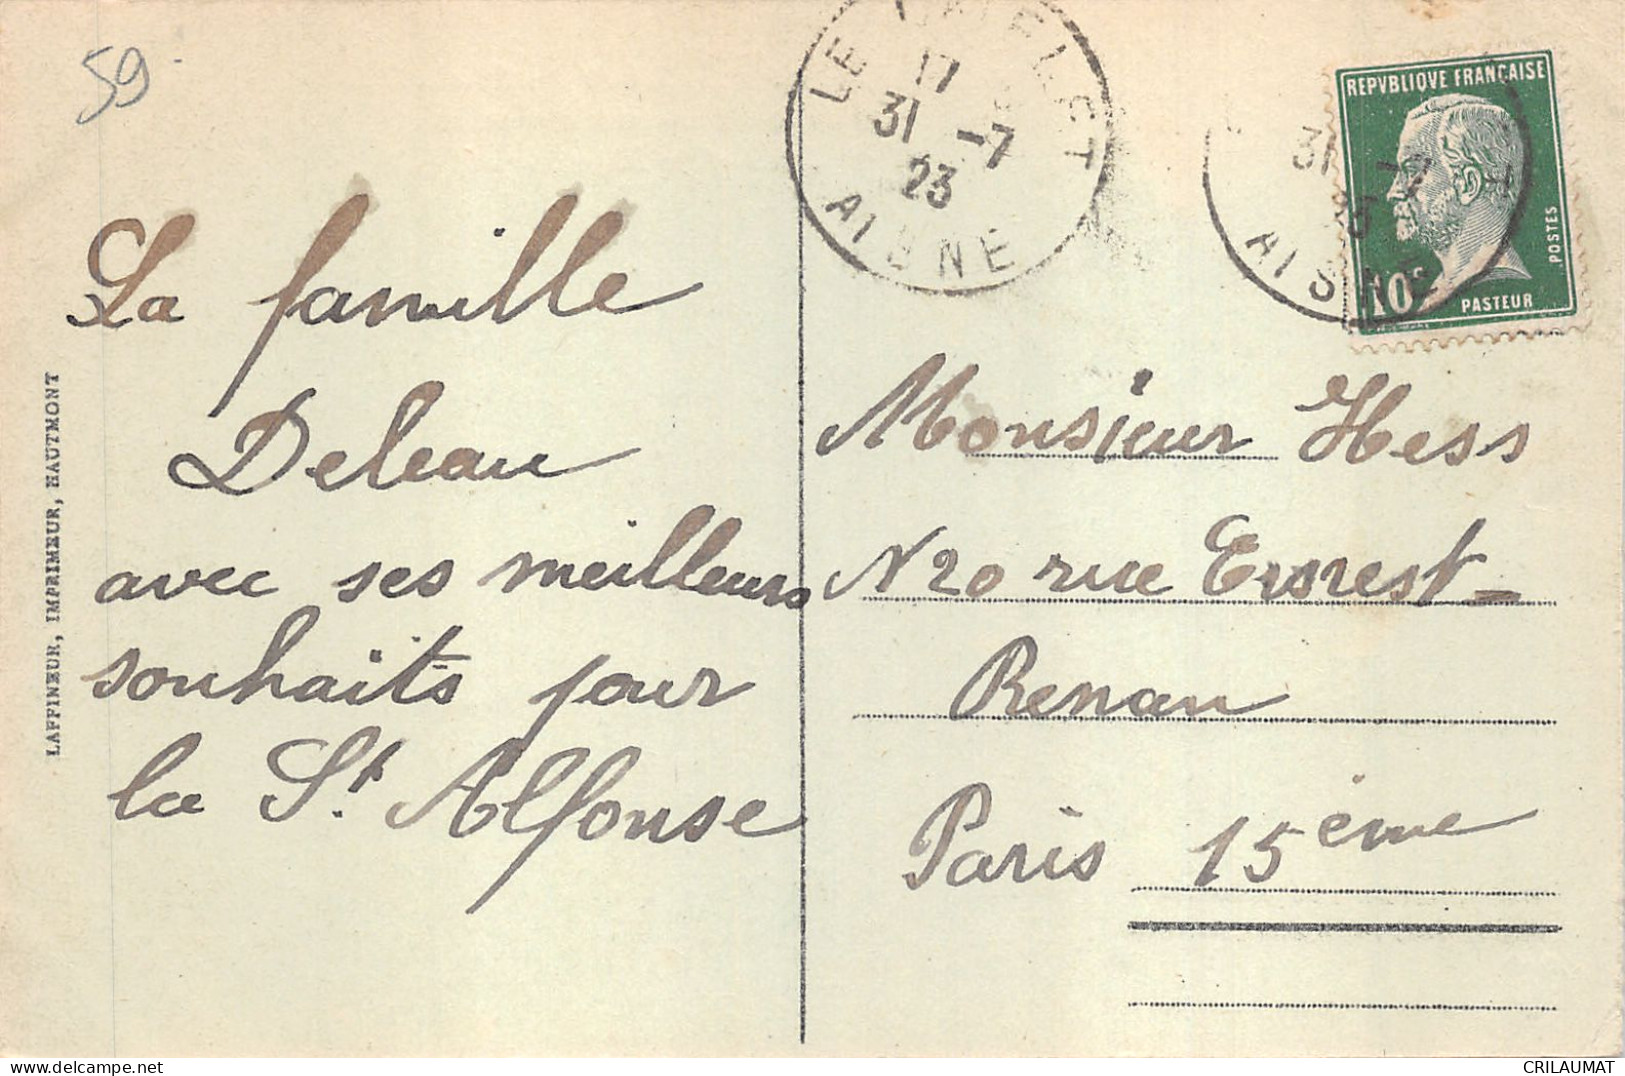 59
LE CATELET
17
31 -7
23
AISNE
REPVBLIQVE FRANÇAISE
POSTES
10c
PASTEUR
31 -7
23
AISNE
LAFFINEUR, IMPRIMEUR, HAUTMONT
La famille
Deleau
avec ses meilleurs
souhaits pour
la St. Alfonse
Monsieur Hess
N 20 rue Ernest-
Renan
Paris 15ème
CRILAUMAT